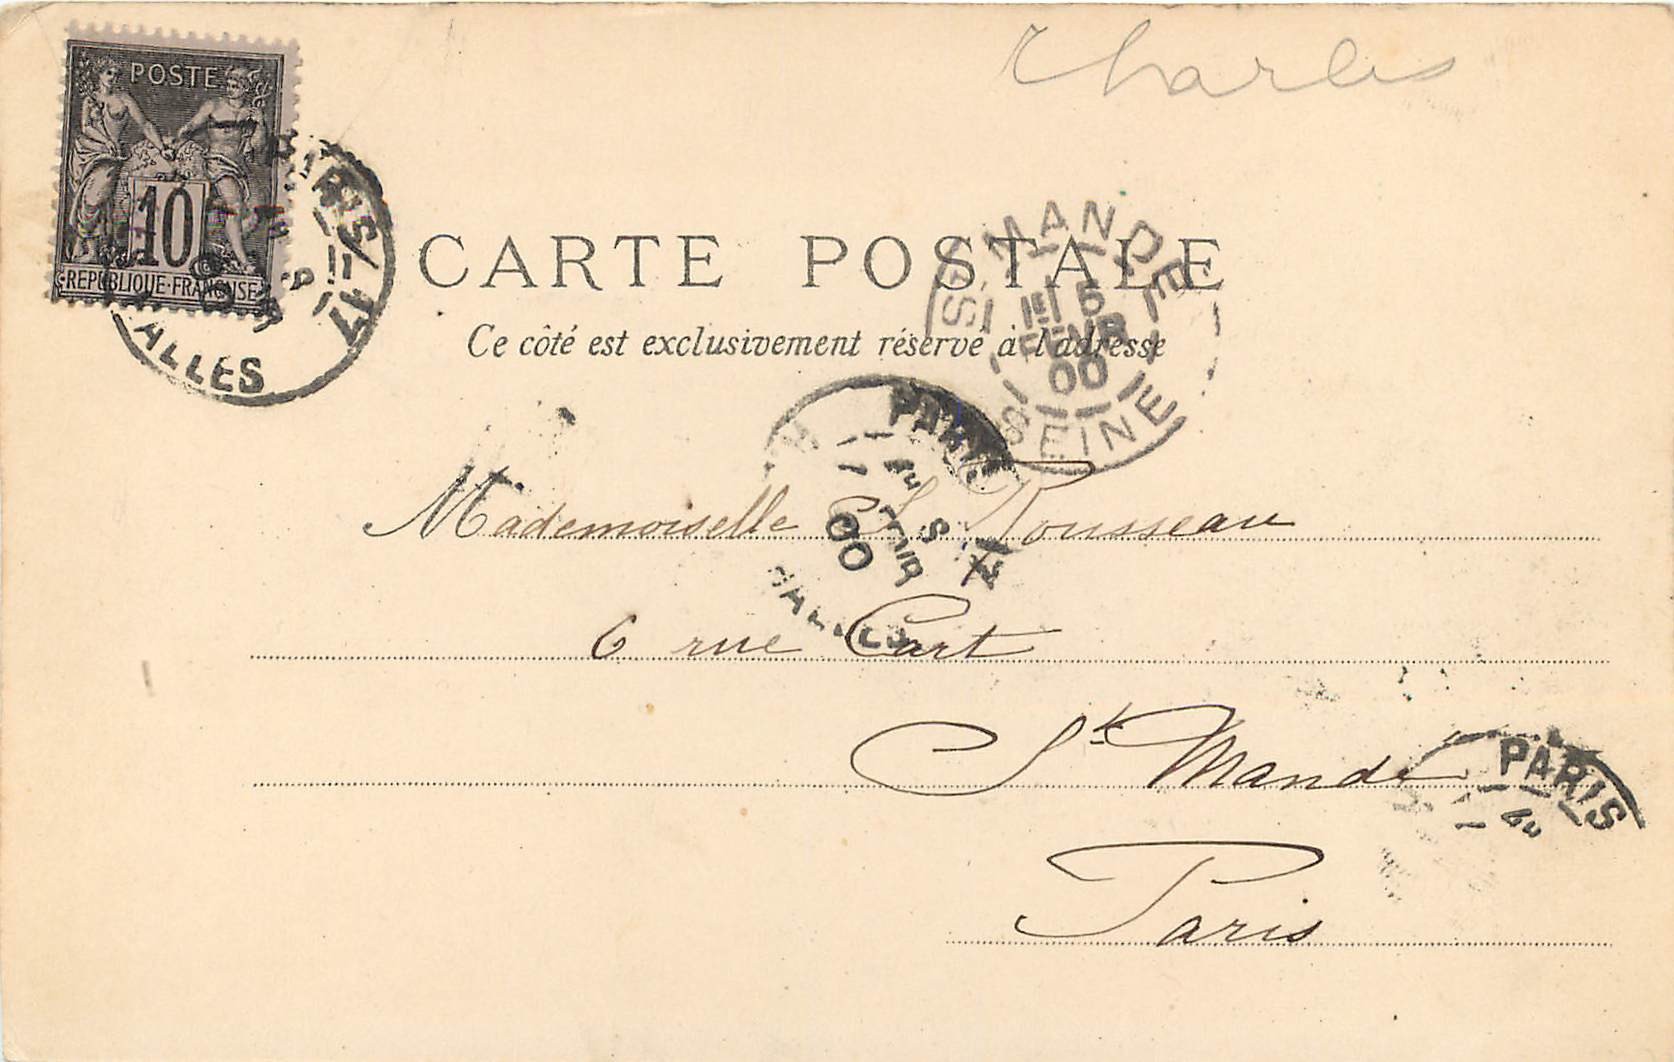 Charles
POSTE
10
REPUBLIQUE·FRANÇAISE
CARTE POSTALE
Ce côté est exclusivement réservé à l'adresse
ST MANDE
1E 5
FEVR
00
SEINE
PARIS
00
HALLES
Mademoiselle S Rousseau
6 rue Cart
St. Mandé
Paris
PARIS